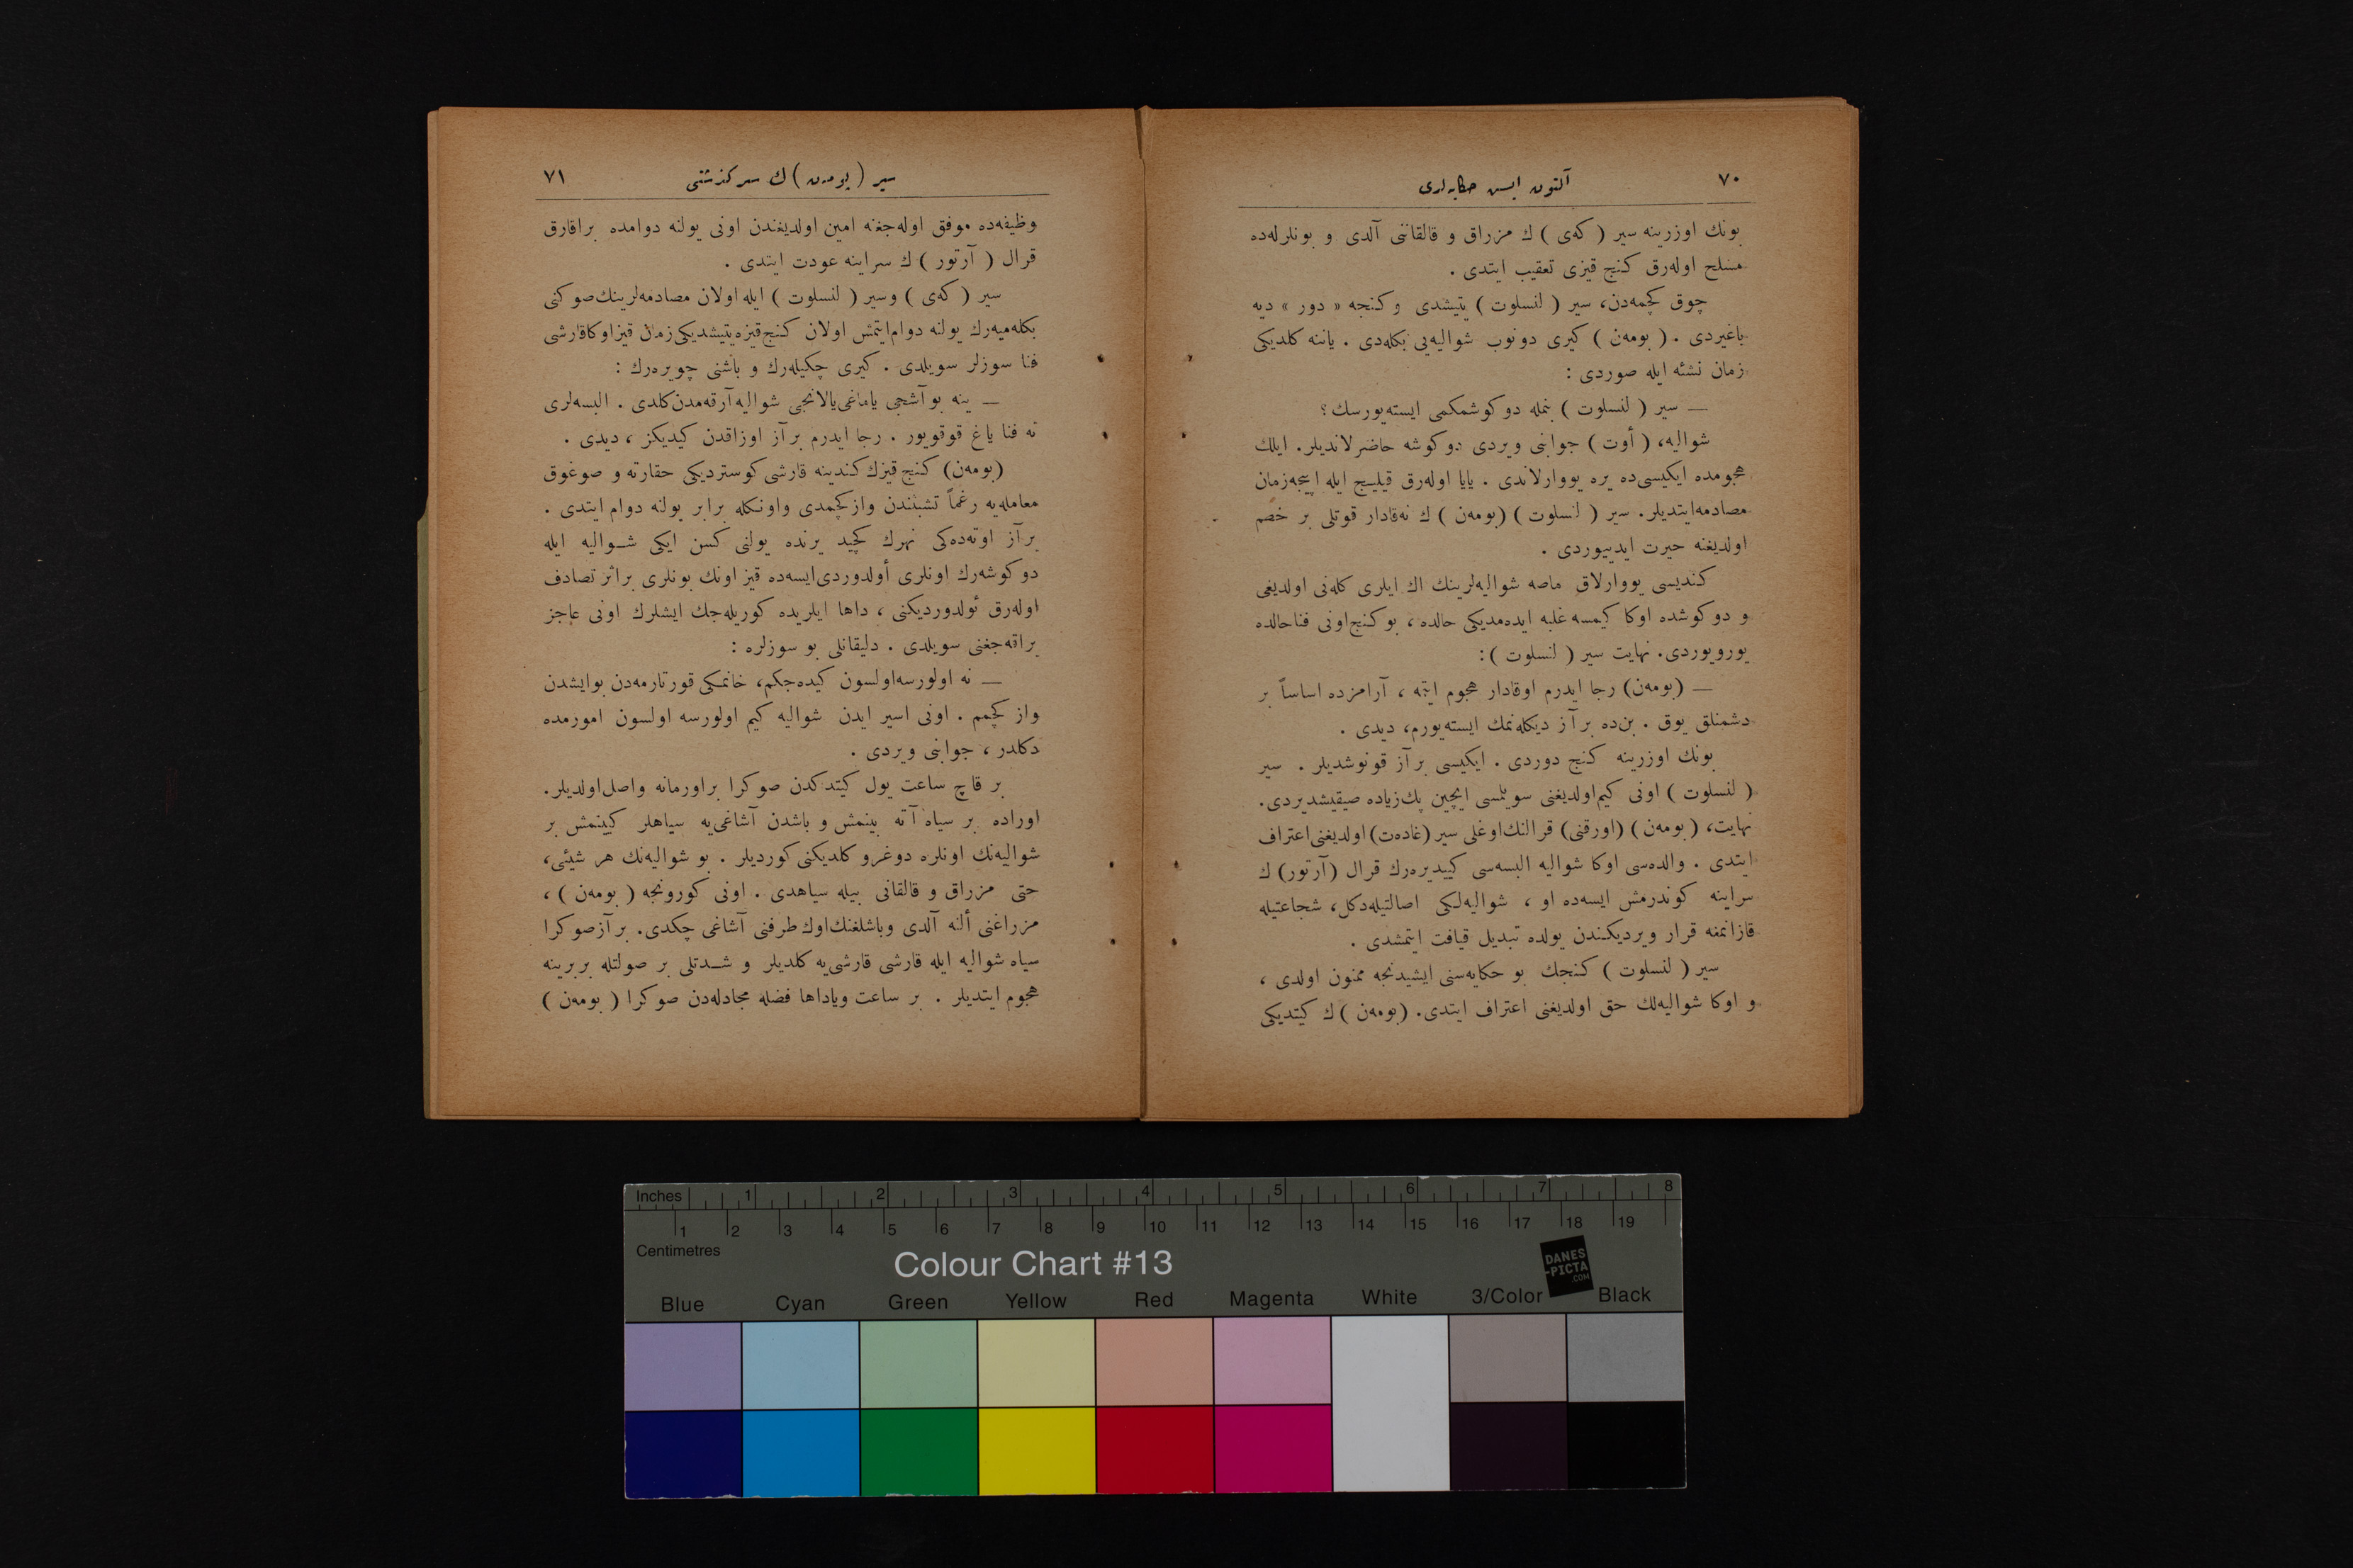 ٧٠
آلتون ایسن حکایه‌لری
بونك اوزرینه سیر ( كه‌ی ) ك مزراق و قالقاننی آلدی و بونلرله‌ده
مسلح اوله‌رق كنج قیزی تعقیب ایتدی .
چوق كچمه‌دن، سیر ( لنسلوت ) یتیشدی و كنجه « دور » دیه
باغیردی . ( بومه‌ن ) كیری دونوب شوالیه‌یی بكله‌دی . یاننه كلدیكی
زمان نشئه ایله صوردی :
— سیر ( لنسلوت ) بنمله دوكوشمكمی ایسته‌یورسك ؟
شوالیه، ( أوت ) جوابنی ویردی دوكوشه حاضرلاندیلر. ایلك
هجومده ایكیسی‌ده یره یووارلاندی . یایا اوله‌رق قیلیج ایله اپیجه‌زمان
مصادمه‌ایتدیلر. سیر ( لنسلوت ) (بومه‌ن ) ك نه‌قادار قوتلی بر خصم
اولدیغنه حیرت ایدییوردی .
كندیسی یووارلاق ماصه شوالیه‌لرینك اك ایلری كله‌نی اولدیغی
و دوكوشده اوكا كیمسه غلبه ایده‌مدیكی حالده ، بو كنج‌اونی فناحالده
یورویوردی. نهایت سیر ( لنسلوت ) :
— (بومه‌ن) رجا ایدرم اوقادار هجوم ایتمه ، آرامزده اساساً بر
دشمنلق یوق . بن‌ده بر آز دیكله‌نمك ایسته‌یورم، دیدی .
بونك اوزرینه كنج دوردی . ایكیسی بر آز قونوشدیلر . سیر
( لنسلوت ) اونی كیم‌اولدیغنی سویلمسی ایچین پك‌زیاده صیقیشدیردی.
نهایت، ( بومه‌ن ) (اورقنی) قرالنك‌اوغلی سیر (غاده‌ت) اولدیغنی‌اعتراف
ایتدی . والده‌سی اوكا شوالیه البسه‌سی كییدیره‌رك قرال (آرتور) ك
سراینه كوندرمش ایسه‌ده او ، شوالیه‌لكی اصالتیله‌دكل، شجاعتیله
قازانمغه قرار ویردیكندن یولده تبدیل قیافت ایتمشدی .
سیر ( لنسلوت ) كنجك بو حكایه‌سنی ایشیدنجه ممنون اولدی ،
و اوكا شوالیه‌لك حق اولدیغنی اعتراف ایتدی. (بومه‌ن ) ك كیتدیكی
سیر ( بومه‌ن ) ك سركذشتی
٧١
وظیفه‌ده موفق اوله‌جغنه امین اولدیغندن اونی یولنه دوامده براقارق
قرال ( آرتور ) ك سراینه عودت ایتدی .
سیر ( كه‌ی ) وسیر ( لنسلوت ) ایله اولان مصادمه‌لرینك‌صوكنی
بكله‌میه‌رك یولنه دوام‌ایتمش اولان كنج‌قیزه‌یتیشدیكی‌زمان قیزاوكاقارشی
فنا سوزلر سویلدی . كیری چكیله‌رك و باشنی چویره‌رك :
— ینه بو آشجی یاماغی‌یالانجی شوالیه آرقه‌مدن‌كلدی . البسه‌لری
نه فنا یاغ قوقویور . رجا ایدرم بر آز اوزاقدن كیدیكز ، دیدی .
(بومه‌ن) كنج قیزك كندینه قارشی كوستردیكی حقارته و صوغوق
معامله‌یه رغماً تشبثندن وازكچمدی واونكله برابر یولنه دوام ایتدی .
بر آز اوته‌ده‌كی نهرك كچید یرنده یولنی كسن ایكی شوالیه ایله
دوكوشه‌رك اونلری أولدوردی‌ایسه‌ده قیز اونك بونلری براثر تصادف
اوله‌رق ئولدوردیكنی ، داها ایلریده كوریله‌جك ایشلرك اونی عاجز
براقه‌جغنی سویلدی . دلیقانلی بو سوزلره :
— نه اولورسه‌اولسون كیده‌جكم، خانمكی قورتارمه‌دن بوایشدن
واز كچمم . اونی اسیر ایدن شوالیه كیم اولورسه اولسون امورمده
دكلدر ، جوابنی ویردی .
بر قاچ ساعت یول كیتدكدن صوكرا براورمانه واصل‌اولدیلر.
اوراده بر سیاه آته بینمش و باشدن آشاغی‌یه سیاهلر كیینمش بر
شوالیه‌نك اونلره دوغرو كلدیكنی كوردیلر . بو شوالیه‌نك هر شیئی،
حتی مزراق و قالقانی بیله سیاهدی . اونی كورونجه ( بومه‌ن ) ،
مزراغنی ألنه آلدی وباشلغنك‌اوك طرفنی آشاغی چكدی. بر آزصوكرا
سیاه شوالیه ایله قارشی قارشی‌یه كلدیلر و شدتلی بر صولتله بربرینه
هجوم ایتدیلر . بر ساعت ویاداها فضله مجادله‌دن صوكرا ( بومه‌ن )
Inches 1 2 3 4 5 6 7 8
1 2 3 4 5 6 7 8 9 10 11 12 13 14 15 16 17 18 19
Centimetres
Colour Chart #13
DANES
-PICTA
.COM
Blue Cyan Green Yellow Red Magenta White 3/Color Black